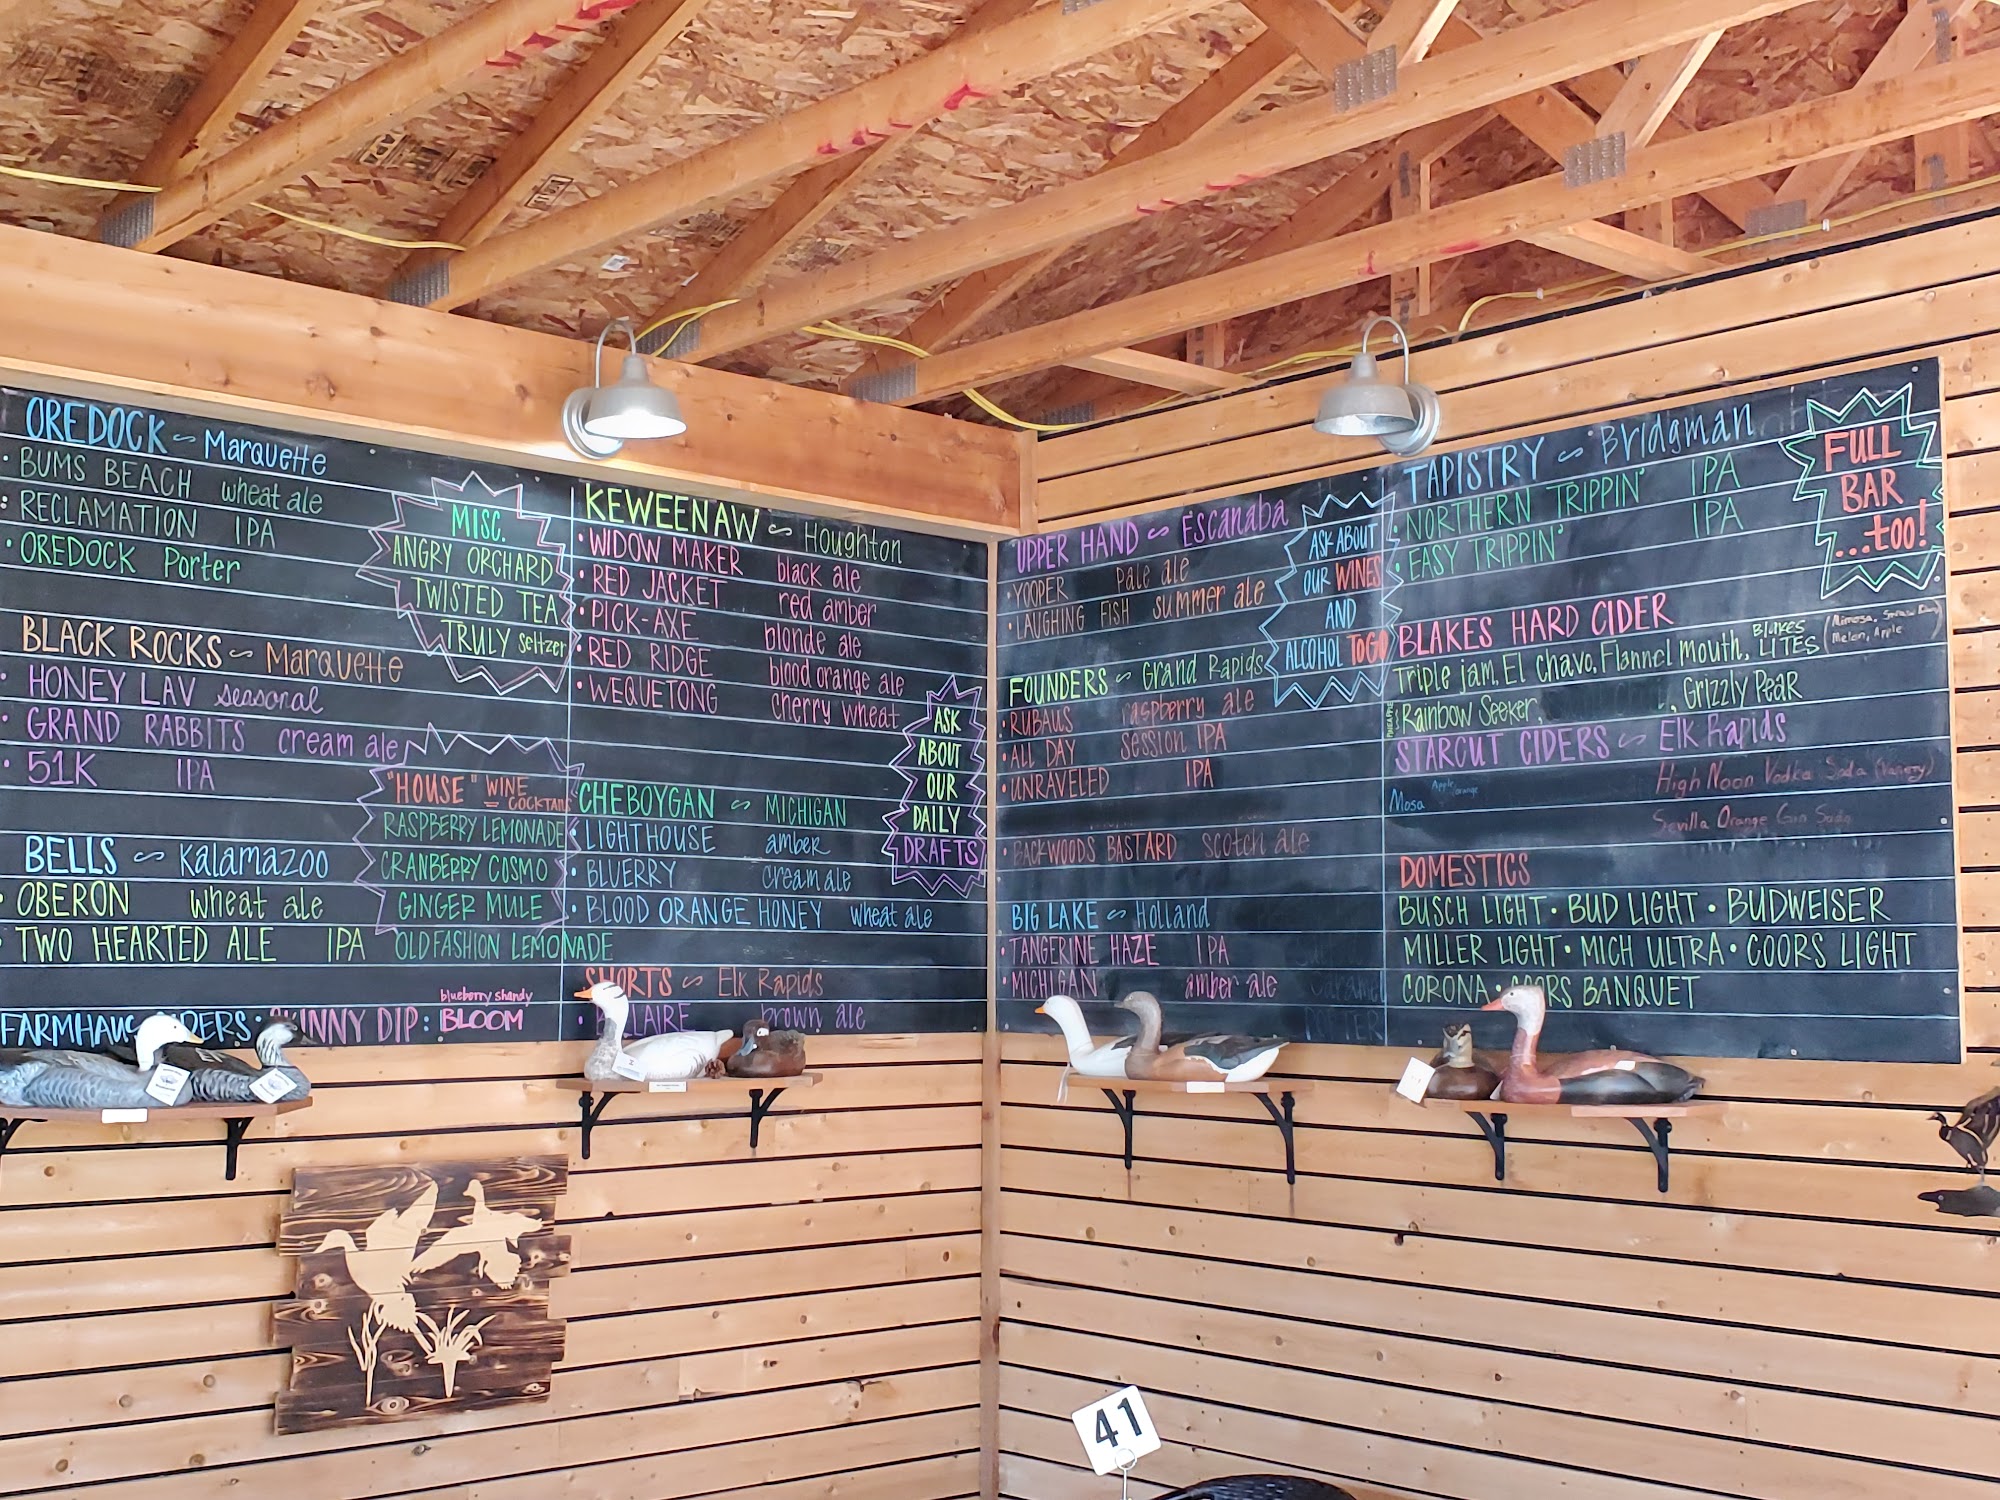 OREDOCK ~ Marquette
• BUMS BEACH wheat ale
• RECLAMATION IPA
• OREDOCK Porter
BLACK ROCKS ~ Marquette
• HONEY LAV seasonal
• GRAND RABBITS cream ale
• 51K IPA
BELLS ~ Kalamazoo
• OBERON wheat ale
• TWO HEARTED ALE IPA
blueberry shandy
SKINNY DIP: BLOOM
MISC.
ANGRY ORCHARD
TWISTED TEA
TRULY seltzer
"HOUSE" WINE
= COCKTAILS
RASPBERRY LEMONADE
CRANBERRY COSMO
GINGER MULE
OLD FASHION LEMONADE
KEWEENAW ~ Houghton
• WIDOW MAKER black ale
• RED JACKET red amber
• PICK-AXE blonde ale
• RED RIDGE blood orange ale
• WEQUETONG cherry wheat
CHEBOYGAN ~ MICHIGAN
• LIGHTHOUSE amber
• BLUERRY cream ale
• BLOOD ORANGE HONEY wheat ale
SHORTS ~ Elk Rapids
• BELLAIRE brown ale
ASK
ABOUT
OUR
DAILY
DRAFTS
UPPER HAND ~ Escanaba
• YOOPER pale ale
• LAUGHING FISH summer ale
FOUNDERS ~ Grand Rapids
• RUBAUS raspberry ale
• ALL DAY session IPA
• UNRAVELED IPA
• BACKWOODS BASTARD scotch ale
BIG LAKE ~ Holland
• TANGERINE HAZE IPA
• MICHIGAN amber ale
ASK ABOUT
OUR WINES
AND
ALCOHOL TO GO
TAPISTRY ~ Bridgman
• NORTHERN TRIPPIN' IPA
• EASY TRIPPIN' IPA
FULL
BAR
...too!
BLAKES HARD CIDER
Triple jam, El Chavo, Flannel Mouth, BLAKES LITES
Melon, Apple
Rainbow Seeker, , Grizzly Pear
STARCUT CIDERS ~ Elk Rapids
Mosa Apple orange
High Noon Vodka Soda (Variety)
Sevilla Orange Gin Soda
DOMESTICS
BUSCH LIGHT • BUD LIGHT • BUDWEISER
MILLER LIGHT • MICH ULTRA • COORS LIGHT
CORONA • COORS BANQUET
41